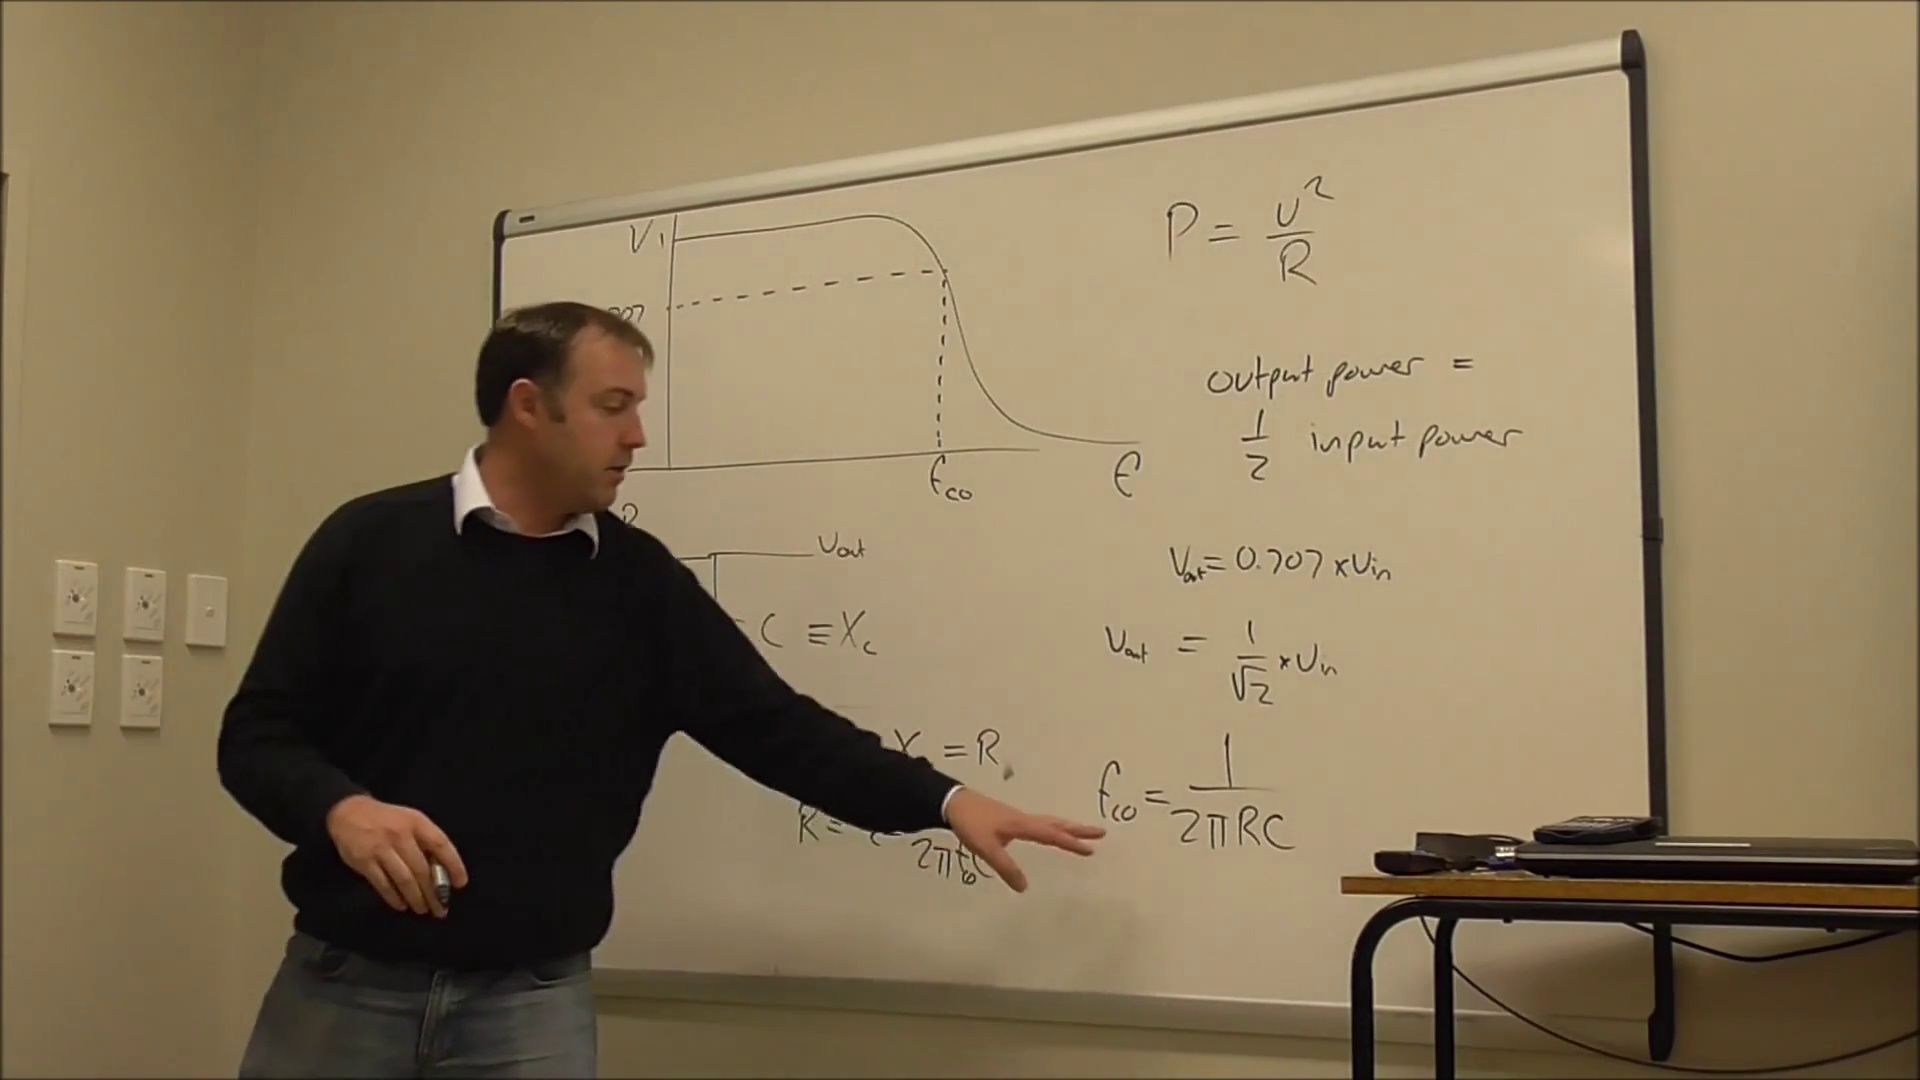 V 1
707
fco
f
R
Vout
C ≡ Xc
X = R
R =
2πfcoC
P = V²/R
output power =
1/2 input power
Vout = 0.707 × Vin
Vout = 1/√2 × Vin
fco = 1/2πRC